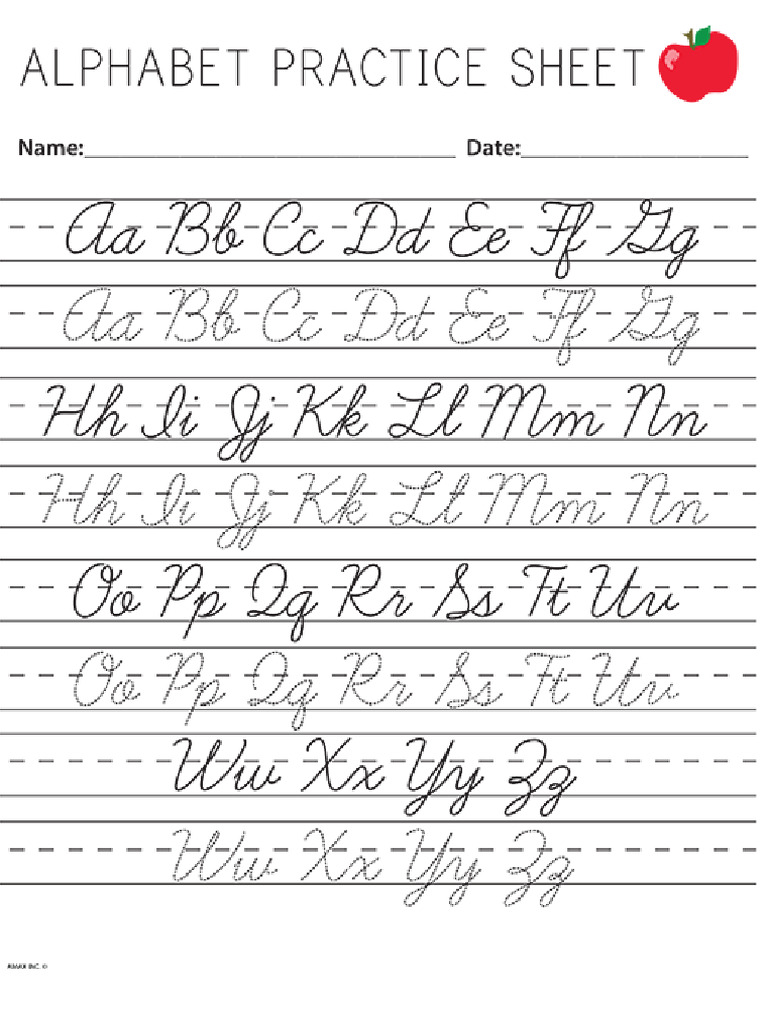 ALPHABET PRACTICE SHEET
Name: Date:
Aa Bb Cc Dd Ee Ff Gg
Aa Bb Cc Dd Ee Ff Gg
Hh Ii Jj Kk Ll Mm Nn
Hh Ii Jj Kk Ll Mm Nn
Oo Pp Qq Rr Ss Tt Uv
Oo Pp Qq Rr Ss Tt Uv
Ww Xx Yy Zz
Ww Xx Yy Zz
INC. ©